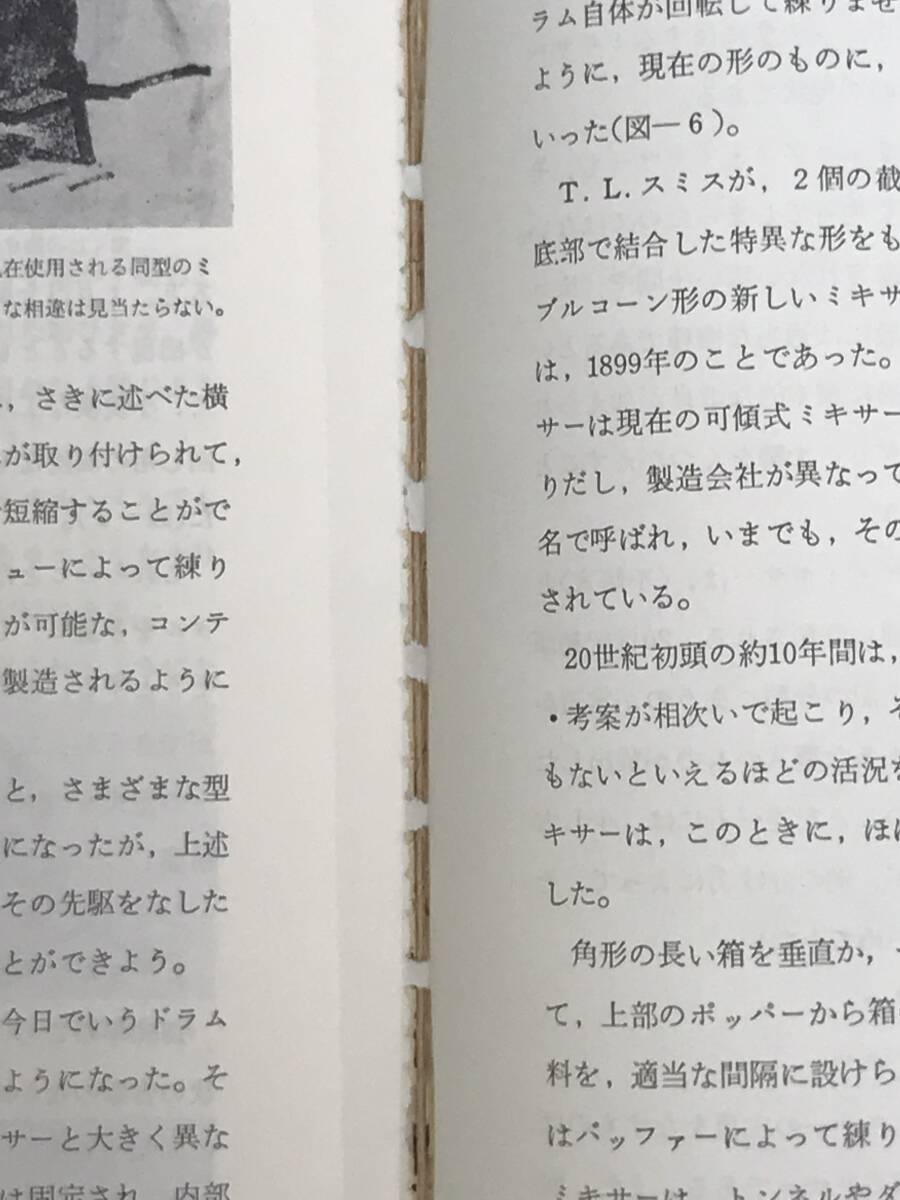 在使用される同型のミ
な相違は見当たらない。
，さきに述べた横
が取り付けられて，
短縮することがで
ューによって練り
が可能な，コンテ
製造されるように
と，さまざまな型
になったが，上述
その先駆をなした
とができよう。
今日でいうドラム
ようになった。そ
サーと大きく異な
は固定され，内部
ラム自体が回転して練りませ
ように，現在の形のものに，
いった(図―6)。
T.L.スミスが，2個の截
底部で結合した特異な形をも
ブルコーン形の新しいミキサ
は，1899年のことであった。
サーは現在の可傾式ミキサー
りだし，製造会社が異なって
名で呼ばれ，いまでも，その
されている。
20世紀初頭の約10年間は，
・考案が相次いで起こり，そ
もないといえるほどの活況を
キサーは，このときに，ほぼ
した。
角形の長い箱を垂直か，
て，上部のポッパーから箱
料を，適当な間隔に設けら
はバッファーによって練り
ミキサーは，トンネルやダ